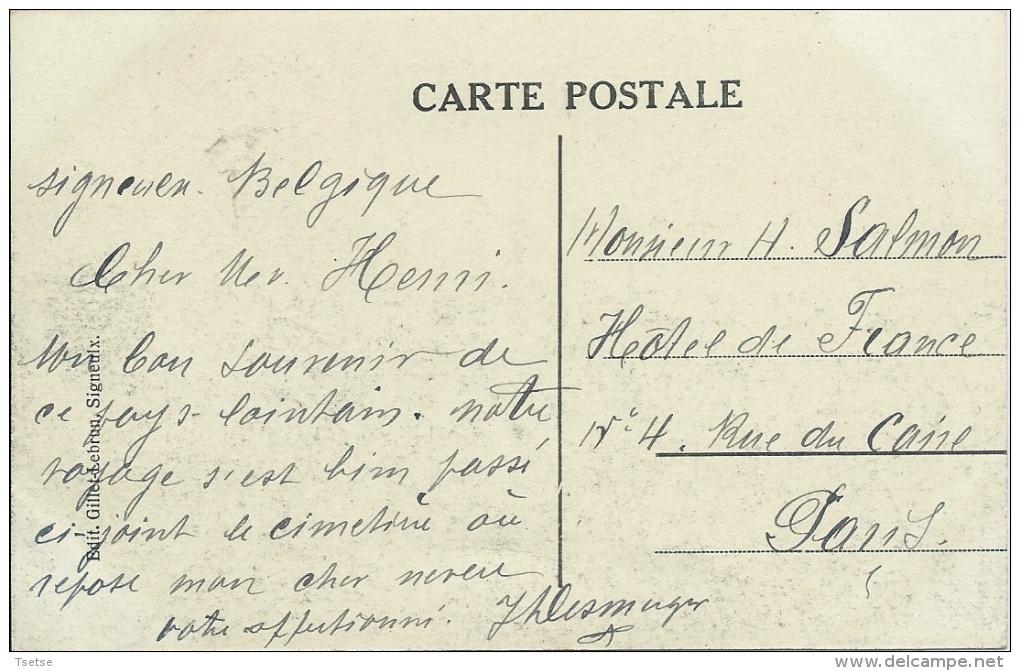 CARTE POSTALE
Signeulx. Belgique
Cher Mer. Henri.
Un bon souvenir de
ce pays lointain. notre
voyage s'est bien passé
ci-joint le cimetière où
repose mon cher neveu
votre affectionné.
Monsieur H. Salmon
Hôtel de France
N° 4. Rue du Caire
Paris.
Edit. Gillet-Lebrun, Signeulx.
Tsetse
delcampe.net